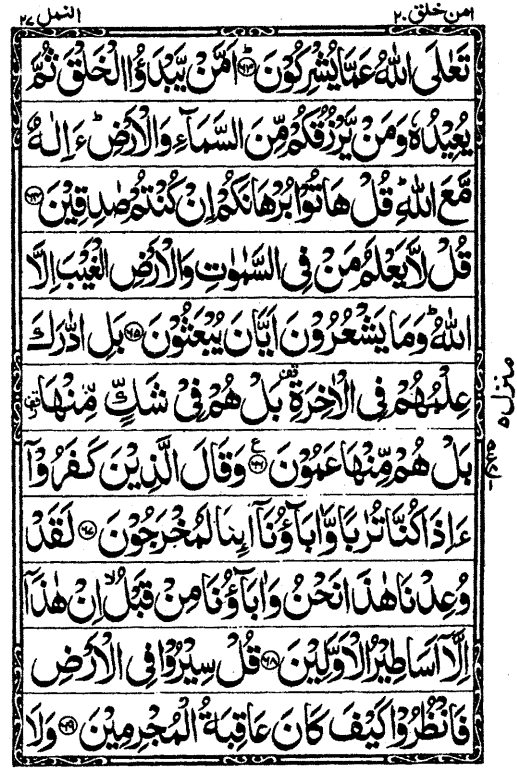 امن خلق ۲۰
النمل ۲۷
تَعٰلَى اللّٰهُ عَمَّا يُشْرِكُوْنَ ﴿۶۳﴾ اَمَّنْ يَّبْدَؤُا الْخَلْقَ ثُمَّ
يُعِيْدُهٗ وَمَنْ يَّرْزُقُكُمْ مِّنَ السَّمَآءِ وَالْاَرْضِ ؕ ءَاِلٰهٌ
مَّعَ اللّٰهِ ؕ قُلْ هَاتُوْا بُرْهَانَكُمْ اِنْ كُنْتُمْ صٰدِقِيْنَ ﴿۶۴﴾
قُلْ لَّا يَعْلَمُ مَنْ فِى السَّمٰوٰتِ وَالْاَرْضِ الْغَيْبَ اِلَّا
اللّٰهُ ؕ وَمَا يَشْعُرُوْنَ اَيَّانَ يُبْعَثُوْنَ ﴿۶۵﴾ بَلِ ادّٰرَكَ
عِلْمُهُمْ فِى الْاٰخِرَةِ بَلْ هُمْ فِىْ شَكٍّ مِّنْهَا
بَلْ هُمْ مِّنْهَا عَمُوْنَ ﴿۶۶﴾ ع وَقَالَ الَّذِيْنَ كَفَرُوْۤا
ءَاِذَا كُنَّا تُرٰبًا وَّاٰبَآؤُنَاۤ اَئِنَّا لَمُخْرَجُوْنَ ﴿۶۷﴾ لَقَدْ
وُعِدْنَا هٰذَا نَحْنُ وَاٰبَآؤُنَا مِنْ قَبْلُ ۙ اِنْ هٰذَاۤ
اِلَّاۤ اَسَاطِيْرُ الْاَوَّلِيْنَ ﴿۶۸﴾ قُلْ سِيْرُوْا فِى الْاَرْضِ
فَانْظُرُوْا كَيْفَ كَانَ عَاقِبَةُ الْمُجْرِمِيْنَ ﴿۶۹﴾ وَلَا
منزل ۵